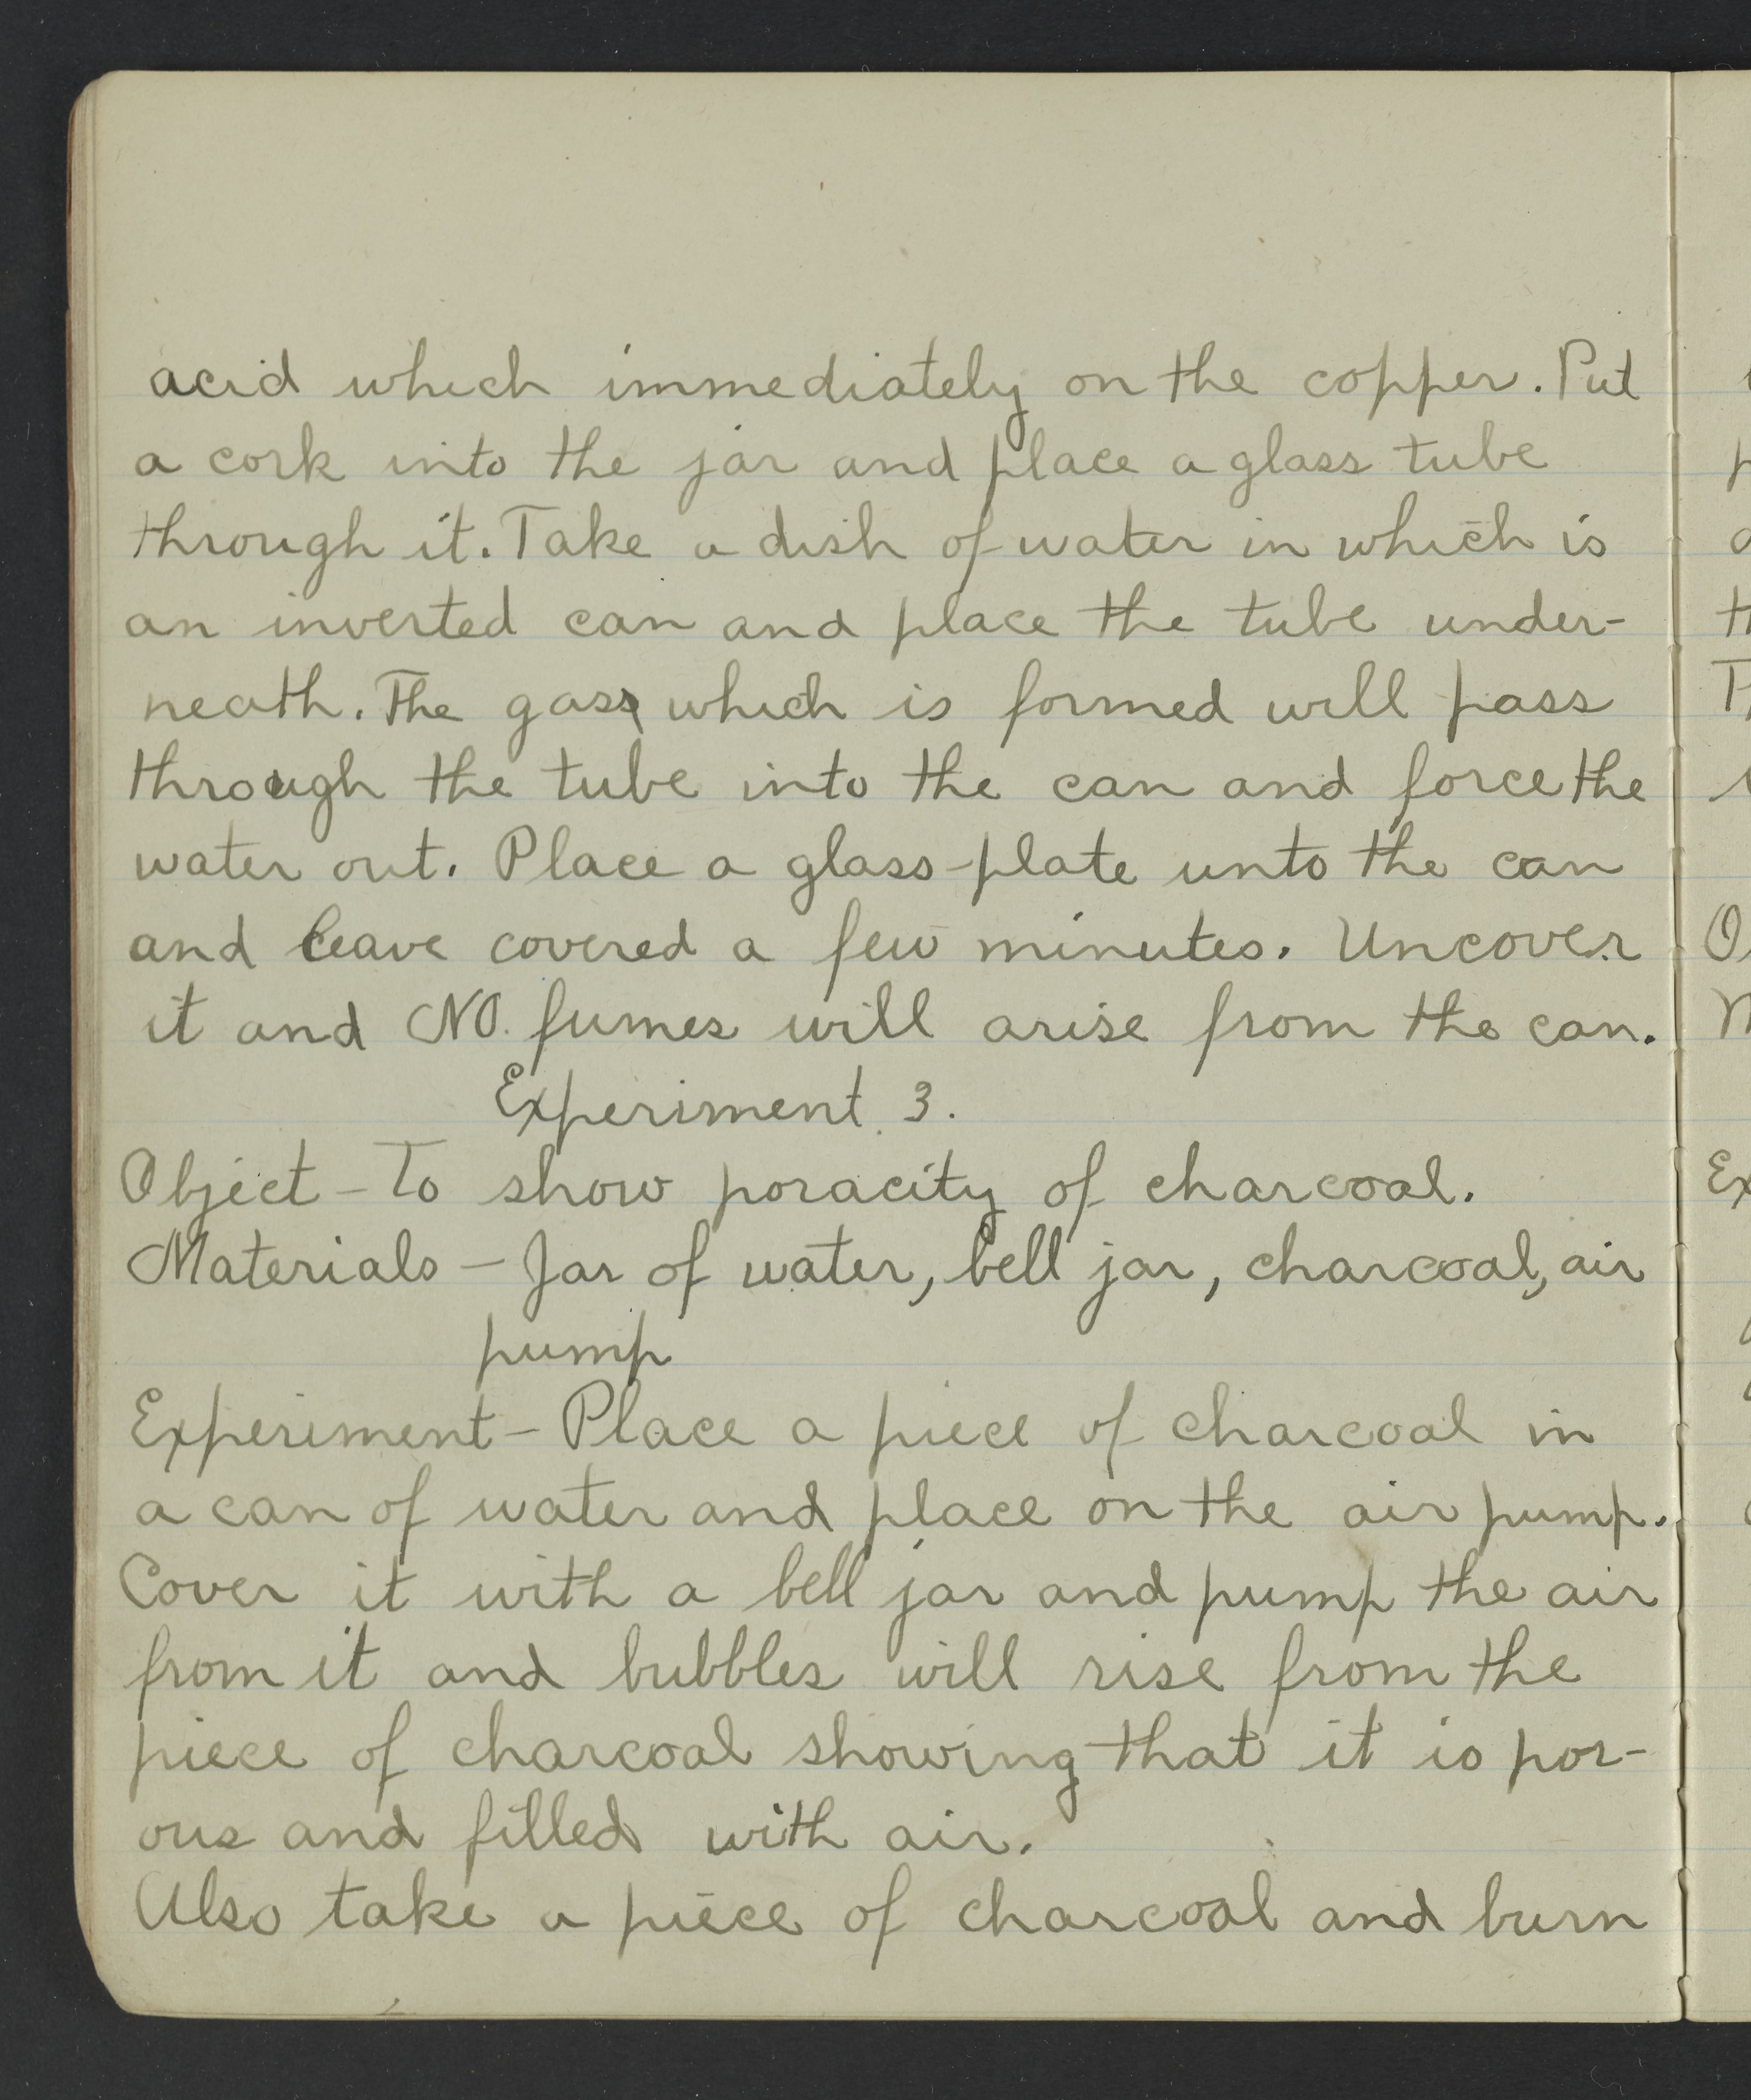 acid which immediately on the copper. Put
a cork into the jar and place a glass tube
through it. Take a dish of water in which is
an inverted can and place the tube under-
neath. The gass which is formed will pass
through the tube into the can and force the
water out. Place a glass-plate unto the can
and leave covered a few minutes. Uncover
it and NO. fumes will arise from the can.
Experiment 3.
Object - To show poracity of charcoal.
Materials - Jar of water, bell jar, charcoal, air
pump
Experiment - Place a piece of charcoal in
a can of water and place on the air pump.
Cover it with a bell jar and pump the air
from it and bubbles will rise from the
piece of charcoal showing that it is por-
ous and filled with air.
Also take a piece of charcoal and burn